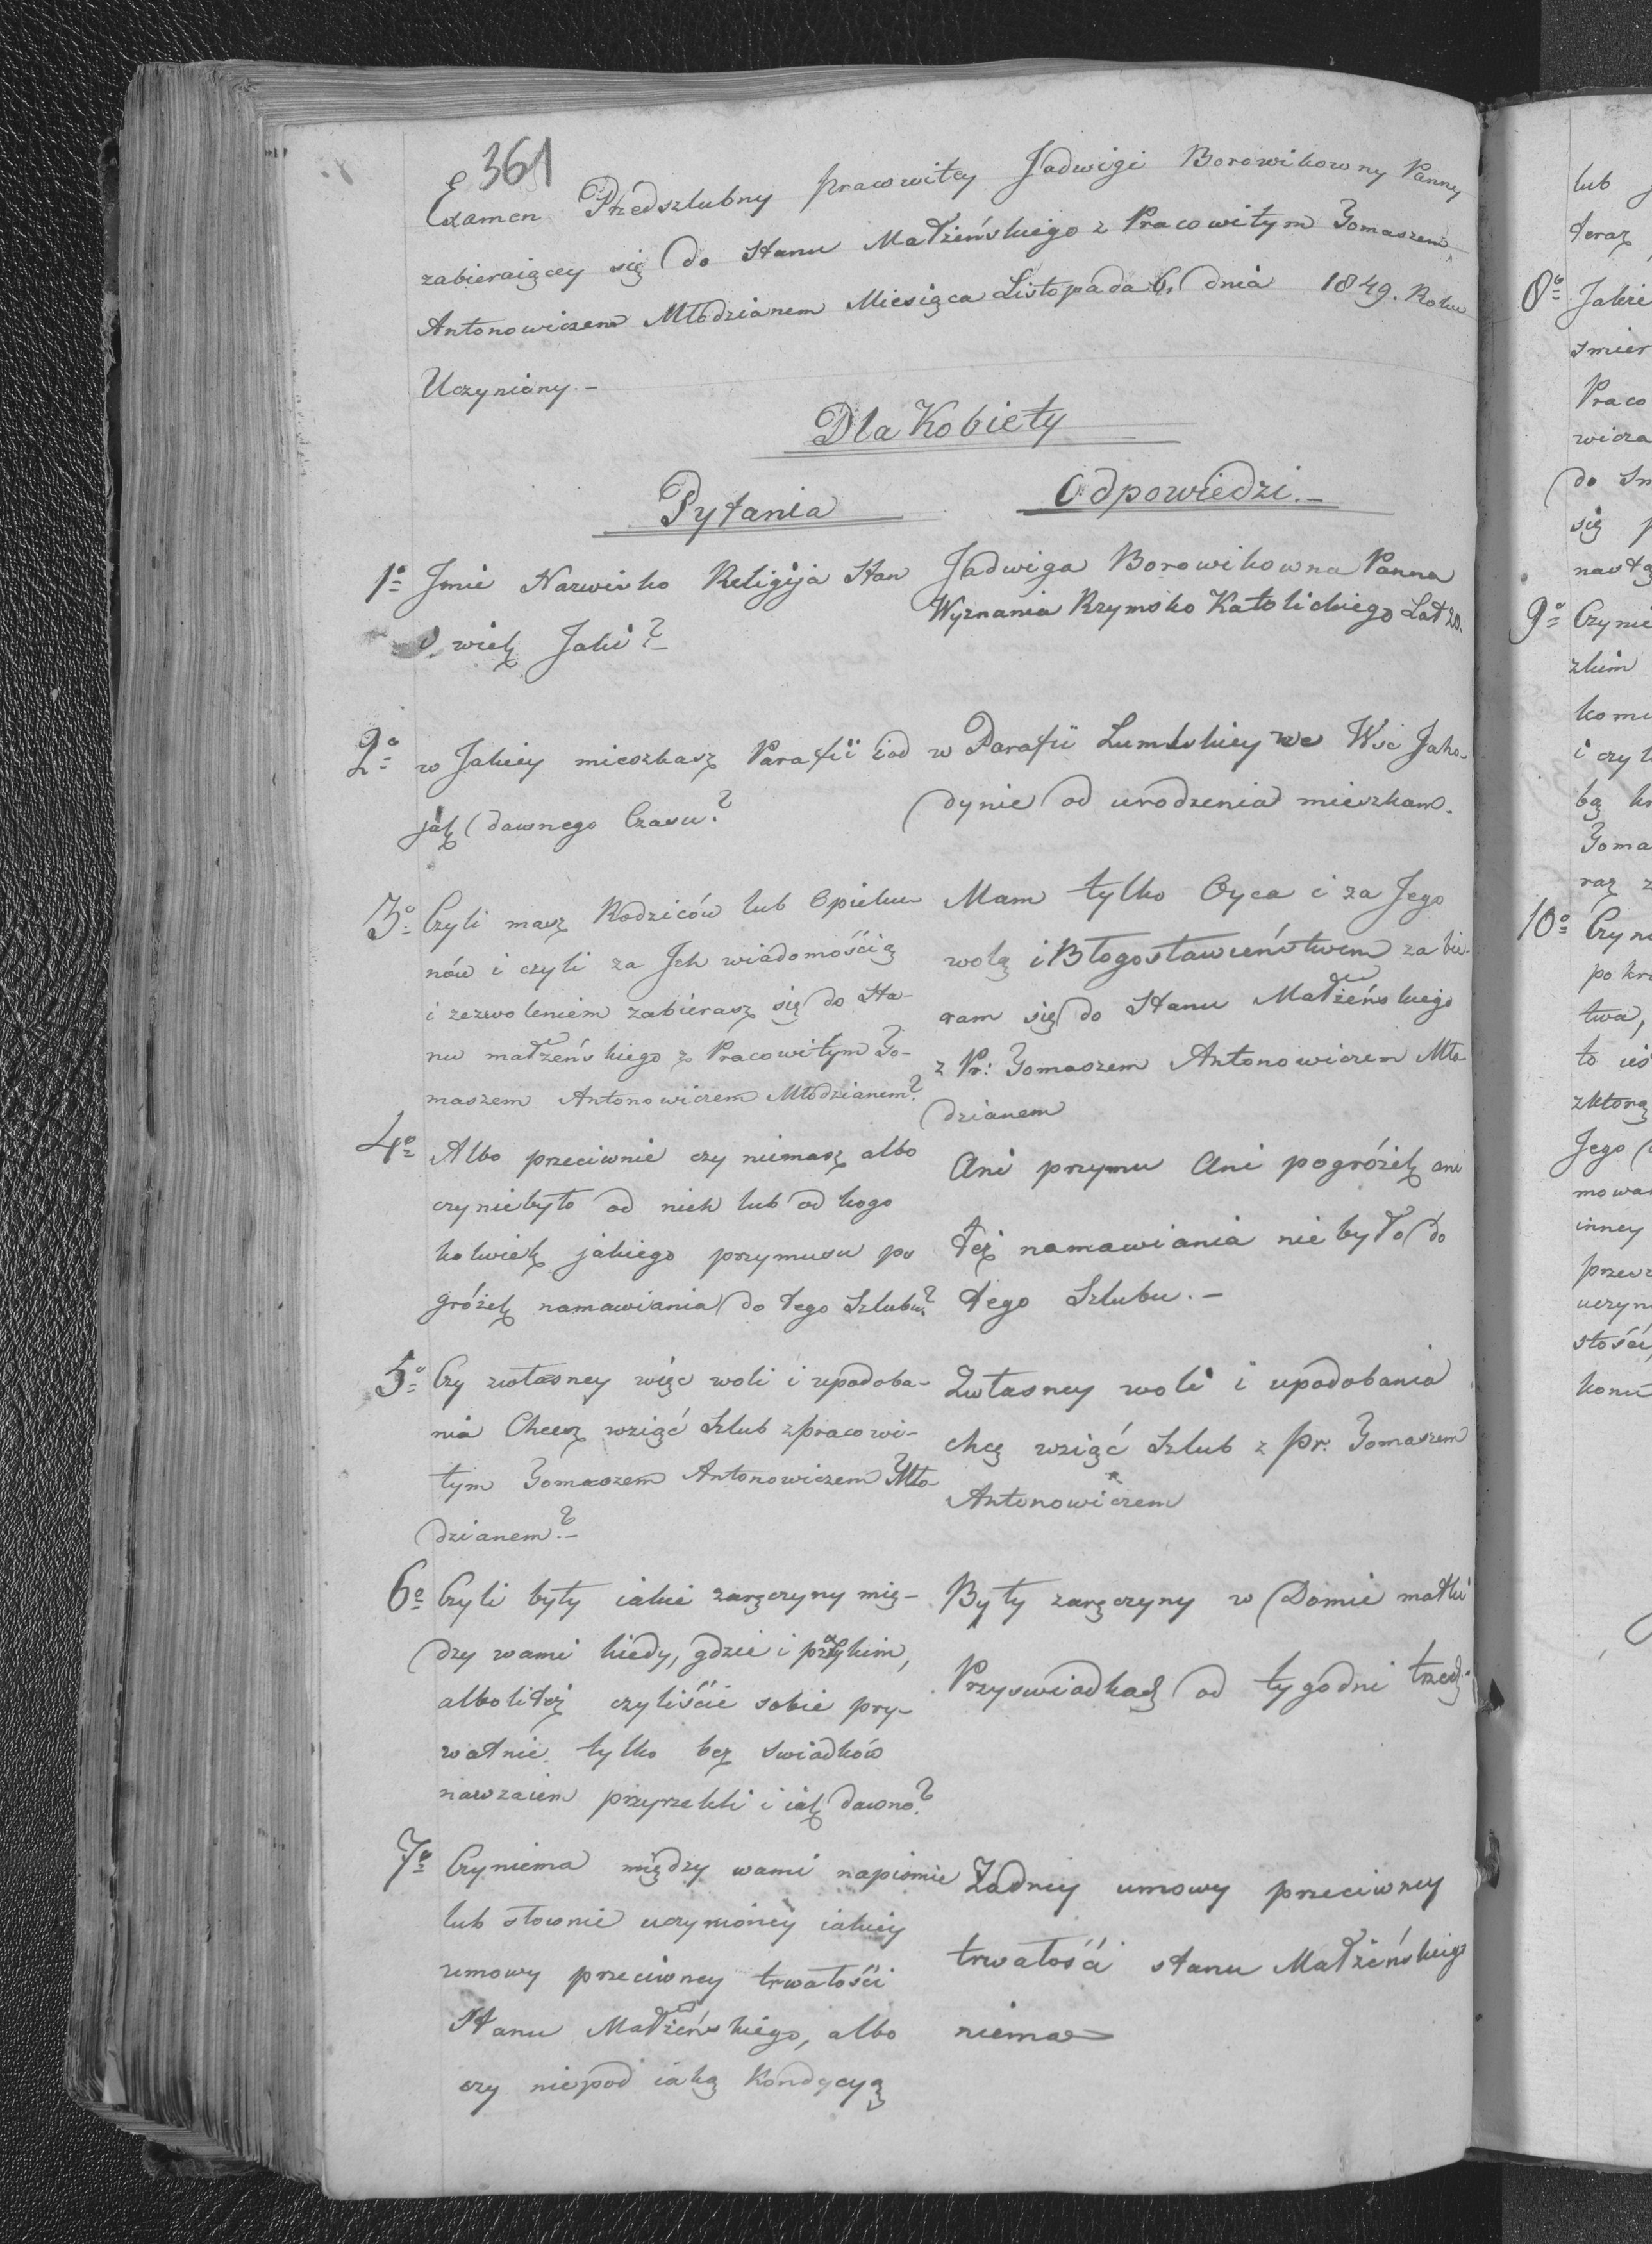 361
Examen Przedszlubny pracowitey Jadwigi Borowikowny Panny
zabieraiącey się do Stanu Małżeńskiego z Pracowitym Tomaszem
Antonowiczem Młodzianem Miesiąca Listopada 6. dnia 1849. Roku
Uczyniony.-
Dla Kobiety
Pytania
Odpowiedzi.-
1º Jmie Nazwisko Religija Stan
wiek Jaki?
Jadwiga Borowikowna Panna
Wyznania Rzymsko Katolickiego Lat 20.
2º w Jakiey mieszkasz Parafii i od
jak dawnego Czasu?
w Parafii we Wsi Jaho-
dynie od urodzenia mieszkam.
3º Czyli masz Rodziców lub Opieku-
nów i czyli za Jch wiadomością
i zezwoleniem zabierasz się do Sta-
nu małżeńskiego z Pracowitym To-
maszem Antonowiczem Młodzianem?
Mam tylko Oyca i za Jego
wolą i Błogosławieństwem zabie-
ram się do Stanu Małżeńskiego
z Pr: Tomaszem Antonowiczem Mło-
dzianem
4º Albo przeciwnie czy niemasz albo
czyniebyło od nich lub od kogo
kolwiek jakiego przymusu po
gróżek namawiania do tego Szlubu?
Ani przymu Ani pogróżek ani
też namawiania niebyło do
tego Szlubu.-
5º Czy zwłasney więc woli i upodoba-
nia Chcesz wziąć Szlub zpracowi-
tym Tomaszem Antonowiczem Mło-
dzianem?-
Zwłasney woli i upodobania
chcę wziąć Szlub z pr. Tomaszem
Antonowiczem
6º Czyli były iakie zaręczyny mię-
dzy wami kiedy, gdzie i przykim,
alboliteż czyliście sobie pry-
watnie tylko bez swiadków
nawzaiem przyrzekli i iak dawno?
Były zaręczyny w Domie matki
Przyswiadkach od tygodni trzech.
7º Czyniema między wami napiśmie
lub słownie uczynioney iakiey
umowy przeciwney trwałości
Stanu Małżeńskiego, albo
czy niepod iaką Kondycyą
Żadney umowy przeciwney
trwałości stanu Małżeńskiego
niema
lub
teraz
8º Jakie
smier
Praco
wicza
do
się
9º Czynie
zkim
i czy
Toma
raz
10º
twa,
to
zktorą
Jego
inney
uczyn